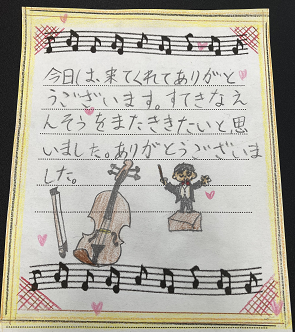 今日は、来てくれてありがと
うございます。すてきなえ
んそうをまたききたいと思
いました。ありがとうございま
した。